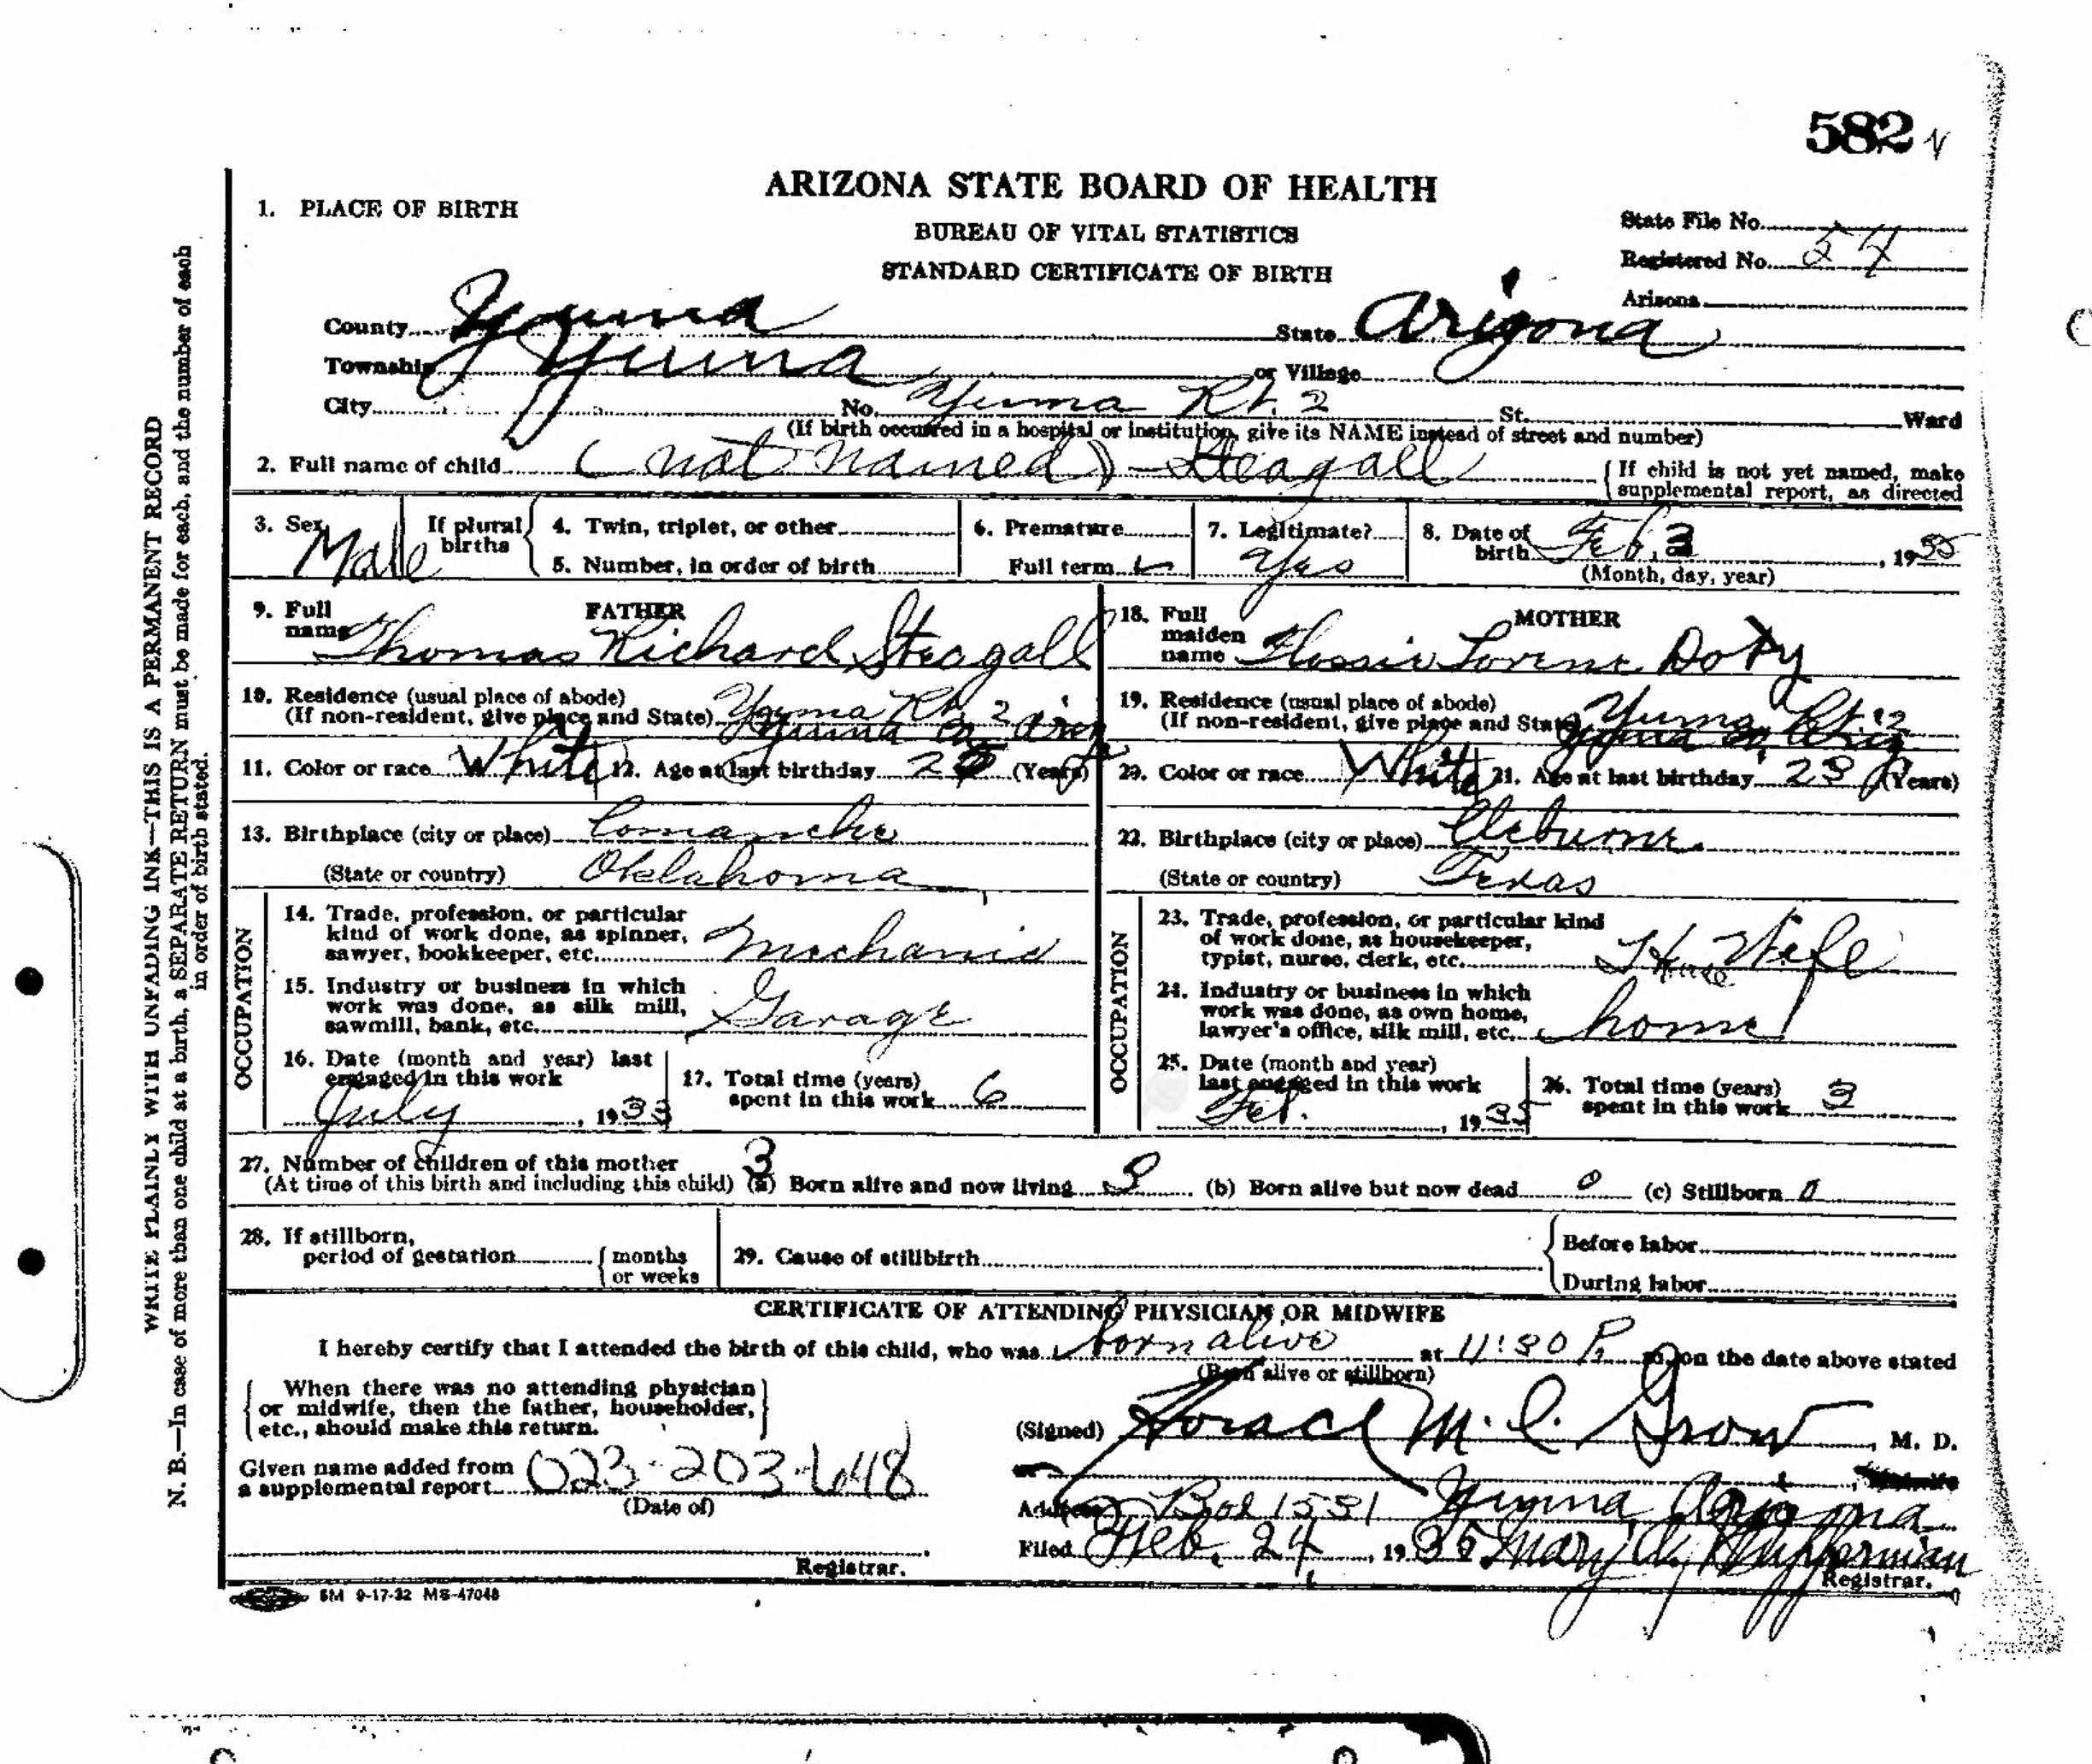 582
ARIZONA STATE BOARD OF HEALTH
1. PLACE OF BIRTH
BUREAU OF VITAL STATISTICS
STANDARD CERTIFICATE OF BIRTH
State File No.
Registered No. 54
Arizona
County Yuma State Arizona
Township Yuma or Village
City No. Yuma Rt. 2 St. Ward
(If birth occurred in a hospital or institution, give its NAME instead of street and number)
2. Full name of child (not named) - Steagall { If child is not yet named, make supplemental report, as directed
3. Sex Male If plural births { 4. Twin, triplet, or other 6. Premature 7. Legitimate? Yes 8. Date of birth Feb. 3, 1935
5. Number, in order of birth Full term (Month, day, year)
9. Full name FATHER Thomas Richard Steagall
10. Residence (usual place of abode) Yuma Rt. 2
(If non-resident, give place and State) Yuma Co. Ariz
11. Color or race White 12. Age at last birthday (Years)
13. Birthplace (city or place) Comanche
(State or country) Oklahoma
OCCUPATION
14. Trade, profession, or particular
kind of work done, as spinner,
sawyer, bookkeeper, etc. Mechanic
15. Industry or business in which
work was done, as silk mill,
sawmill, bank, etc. Garage
16. Date (month and year) last
engaged in this work
July, 1933
17. Total time (years)
spent in this work 6
18. Full maiden name MOTHER Flossie Lorene Doty
19. Residence (usual place of abode) Yuma Rt. 2
(If non-resident, give place and State) Yuma Co. Ariz
20. Color or race White 21. Age at last birthday 23 (Years)
22. Birthplace (city or place) Cleburne
(State or country) Texas
OCCUPATION
23. Trade, profession, or particular kind
of work done, as housekeeper,
typist, nurse, clerk, etc. House Wife
24. Industry or business in which
work was done, as own home,
lawyer's office, silk mill, etc. home
25. Date (month and year)
last engaged in this work
Feb. , 1935
26. Total time (years)
spent in this work 3
27. Number of children of this mother 3
(At time of this birth and including this child) (a) Born alive and now living 3 (b) Born alive but now dead 0 (c) Stillborn 0
28. If stillborn,
period of gestation { months
or weeks
29. Cause of stillbirth { Before labor
During labor
CERTIFICATE OF ATTENDING PHYSICIAN OR MIDWIFE
I hereby certify that I attended the birth of this child, who was born alive at 11:30 P. m. on the date above stated
(Born alive or stillborn)
{ When there was no attending physician
or midwife, then the father, householder,
etc., should make this return. }
(Signed) Horace M. C. Grow, M. D.
or
Given name added from
a supplemental report 023-203-648
(Date of)
Address Box 1551 Yuma Arizona
Filed Feb. 24, 1935 Mary
Registrar.
Registrar.
5M 9-17-32 MS-47048
WRITE PLAINLY WITH UNFADING INK—THIS IS A PERMANENT RECORD
N. B.—In case of more than one child at a birth, a SEPARATE RETURN must be made for each, and the number of each
in order of birth stated.